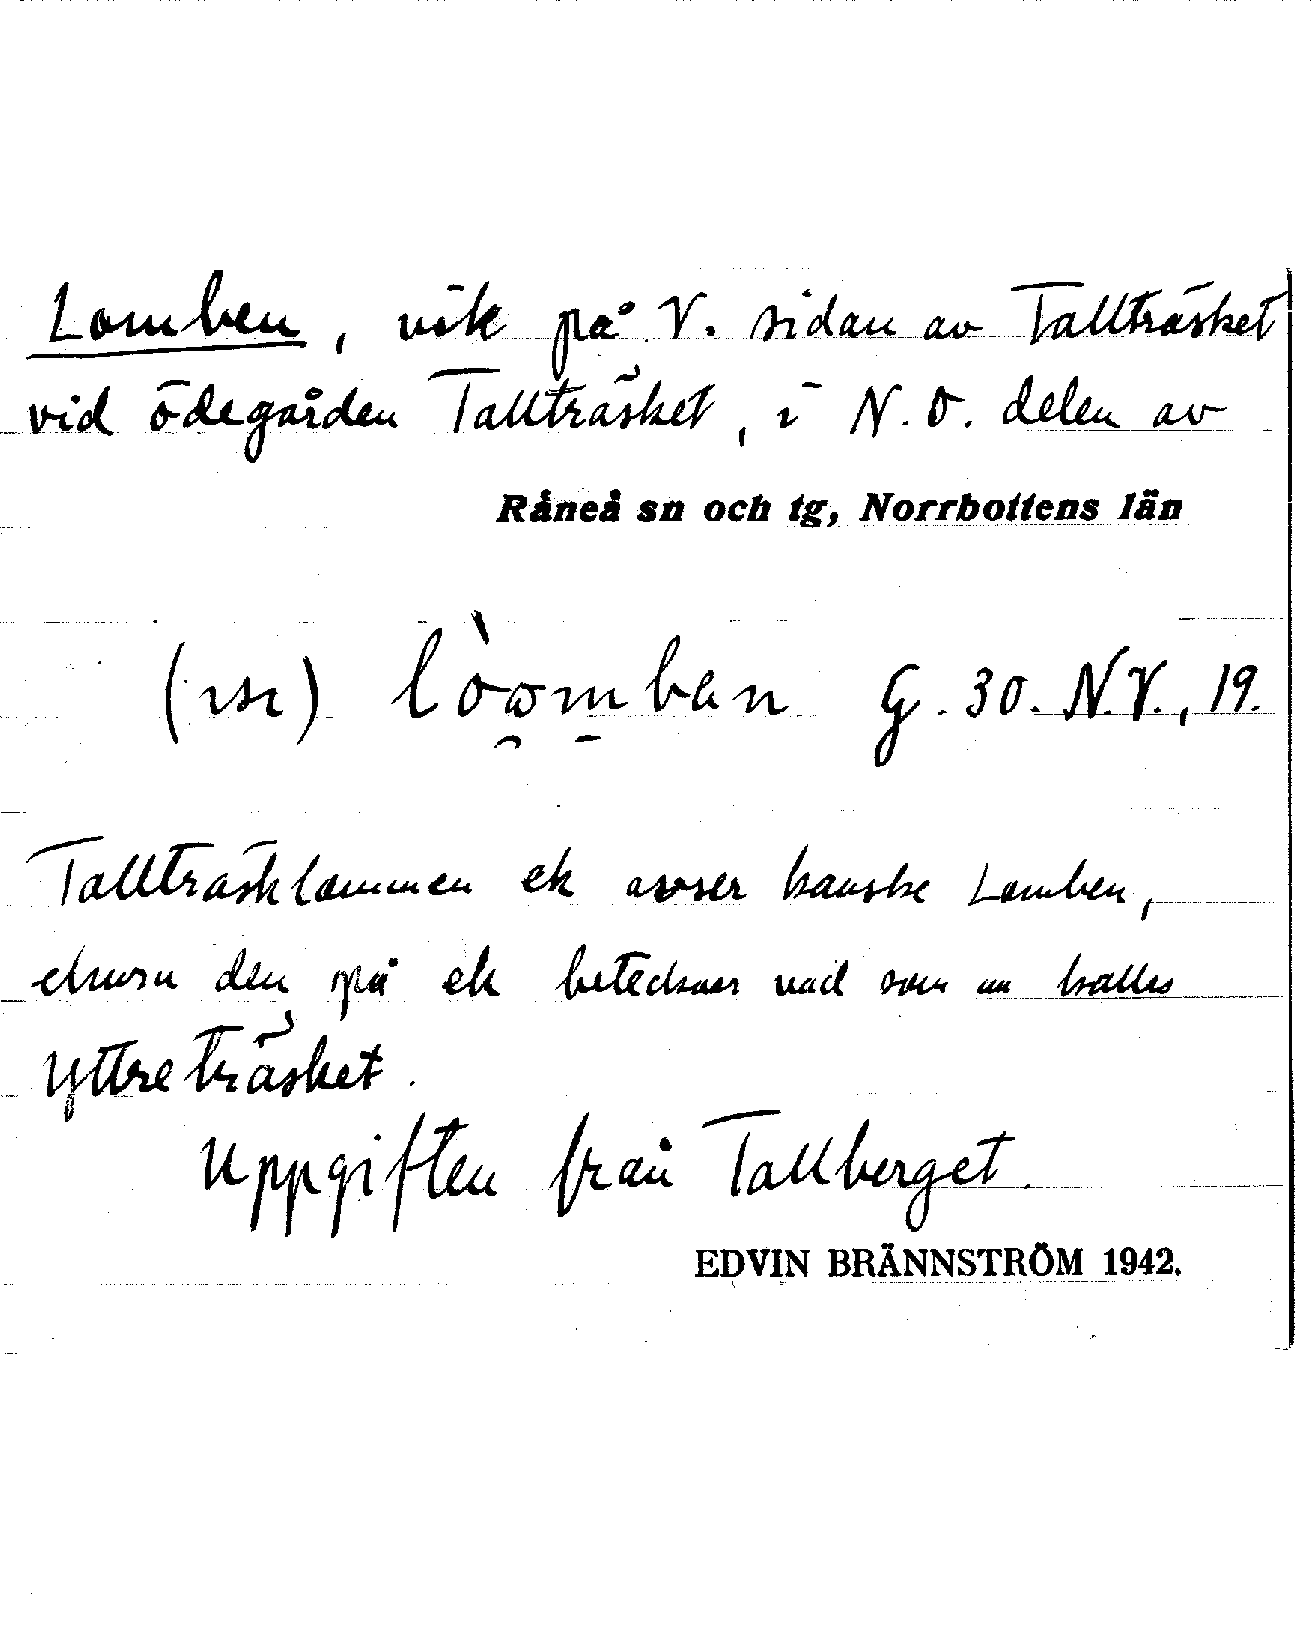 Lomben, vik på V. sidan av Tallträsket
vid ödegården Tallträsket, i N.O. delen av
Råneå sn och tg, Norrbottens län
lòωmban G. 30. N.V., 19.
Tallträsklommen ek avser kanske Lomben,
ehuru den på ek betecknar vad som nu kallas
Yttreträsket.
Uppgiften från Tallberget.
EDVIN BRÄNNSTRÖM 1942.